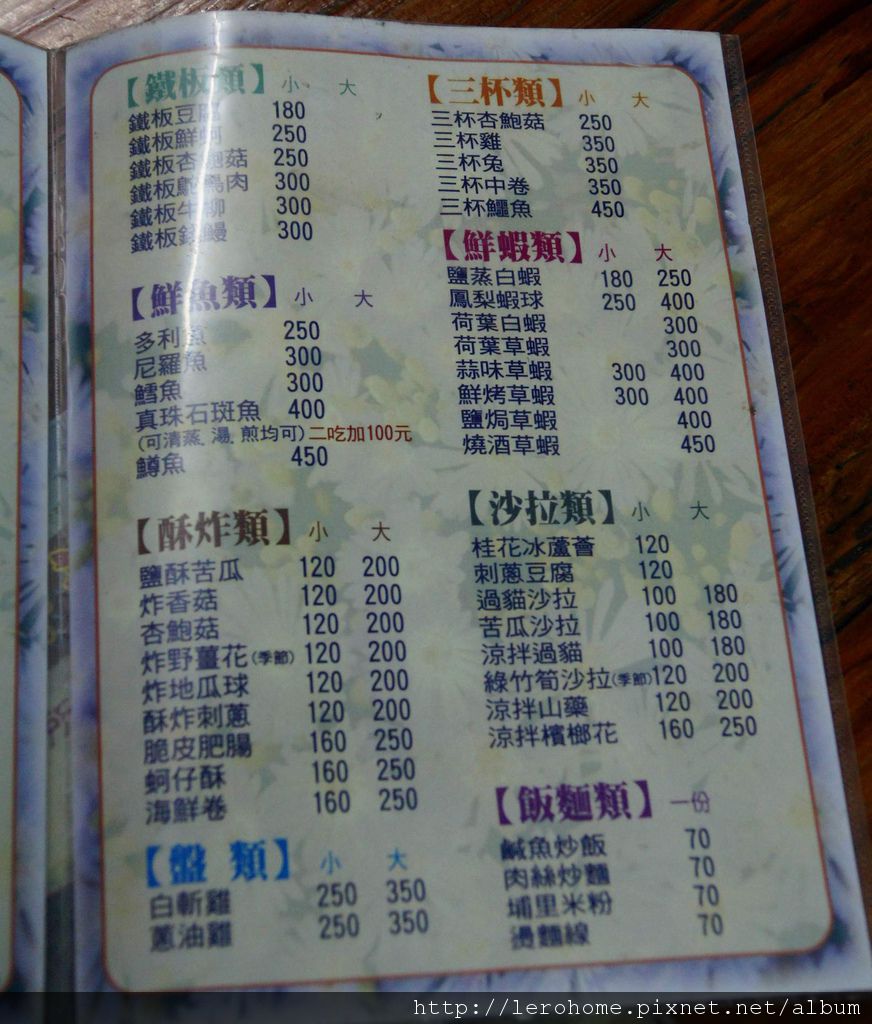 【鐵板類】 小 大
鐵板豆腐 180
鐵板鮮蚵 250
鐵板杏鮑菇 250
鐵板鴕鳥肉 300
鐵板牛柳 300
鐵板鱔鰻 300
【鮮魚類】 小 大
多利魚 250
尼羅魚 300
鱈魚 300
真珠石斑魚 400
(可清蒸、湯、煎均可)二吃加100元
鱒魚 450
【酥炸類】 小 大
鹽酥苦瓜 120 200
炸香菇 120 200
杏鮑菇 120 200
炸野薑花(季節) 120 200
炸地瓜球 120 200
酥炸刺蔥 120 200
脆皮肥腸 160 250
蚵仔酥 160 250
海鮮卷 160 250
【盤 類】 小 大
白斬雞 250 350
蔥油雞 250 350
【三杯類】 小 大
三杯杏鮑菇 250
三杯雞 350
三杯兔 350
三杯中卷 350
三杯鱷魚 450
【鮮蝦類】 小 大
鹽蒸白蝦 180 250
鳳梨蝦球 250 400
荷葉白蝦 300
荷葉草蝦 300
蒜味草蝦 300 400
鮮烤草蝦 300 400
鹽焗草蝦 400
燒酒草蝦 450
【沙拉類】 小 大
桂花冰蘆薈 120
刺蔥豆腐 120
過貓沙拉 100 180
苦瓜沙拉 100 180
涼拌過貓 100 180
綠竹筍沙拉(季節) 120 200
涼拌山藥 120 200
涼拌檳榔花 160 250
【飯麵類】 一份
鹹魚炒飯 70
肉絲炒麵 70
埔里米粉 70
燙麵線 70
http://lerohome.pixnet.net/album